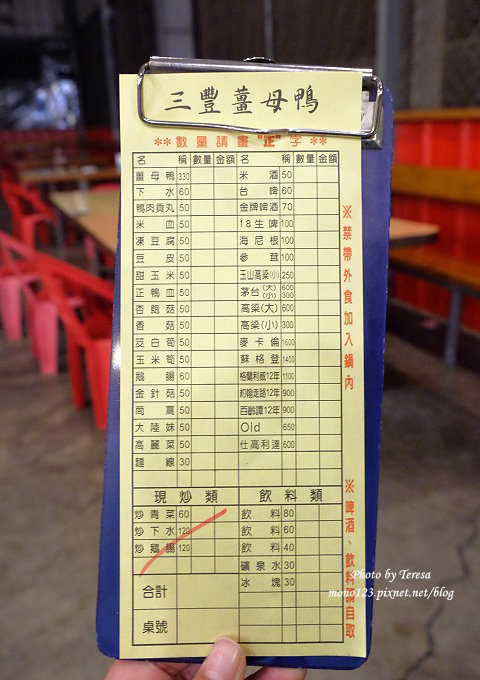 三豐薑母鴨
**數量請畫"正"字**
名 稱 數量 金額 名 稱 數量 金額
薑母鴨 330 米酒 50
下水 60 台啤 60
鴨肉貢丸 50 金牌啤酒 70
米血 50 18生啤 100
凍豆腐 50 海尼根 100
豆皮 50 參茸 100
甜玉米 50 玉山高粱(小) 250
正鴨血 50 茅台(大) 600 (小) 300
杏鮑菇 50 高粱(大) 600
香菇 50 高粱(小) 300
茭白筍 50 麥卡倫 1600
玉米筍 50 蘇格登 1400
鵝腸 60 格蘭利威12年 1100
金針菇 50 約翰走路12年 900
茼蒿 50 百齡譚12年 900
大陸妹 50 Old 650
高麗菜 50 仕高利達 600
麵線 30
現炒類 飲料類
炒青菜 60 飲料 80
炒下水 120 飲料 60
炒鵝腸 120 飲料 40
礦泉水 30
合計 冰塊 30
桌號
※禁帶外食加入鍋內
※啤酒、飲料請自取
Photo by Teresa
mono123.pixnet.net/blog